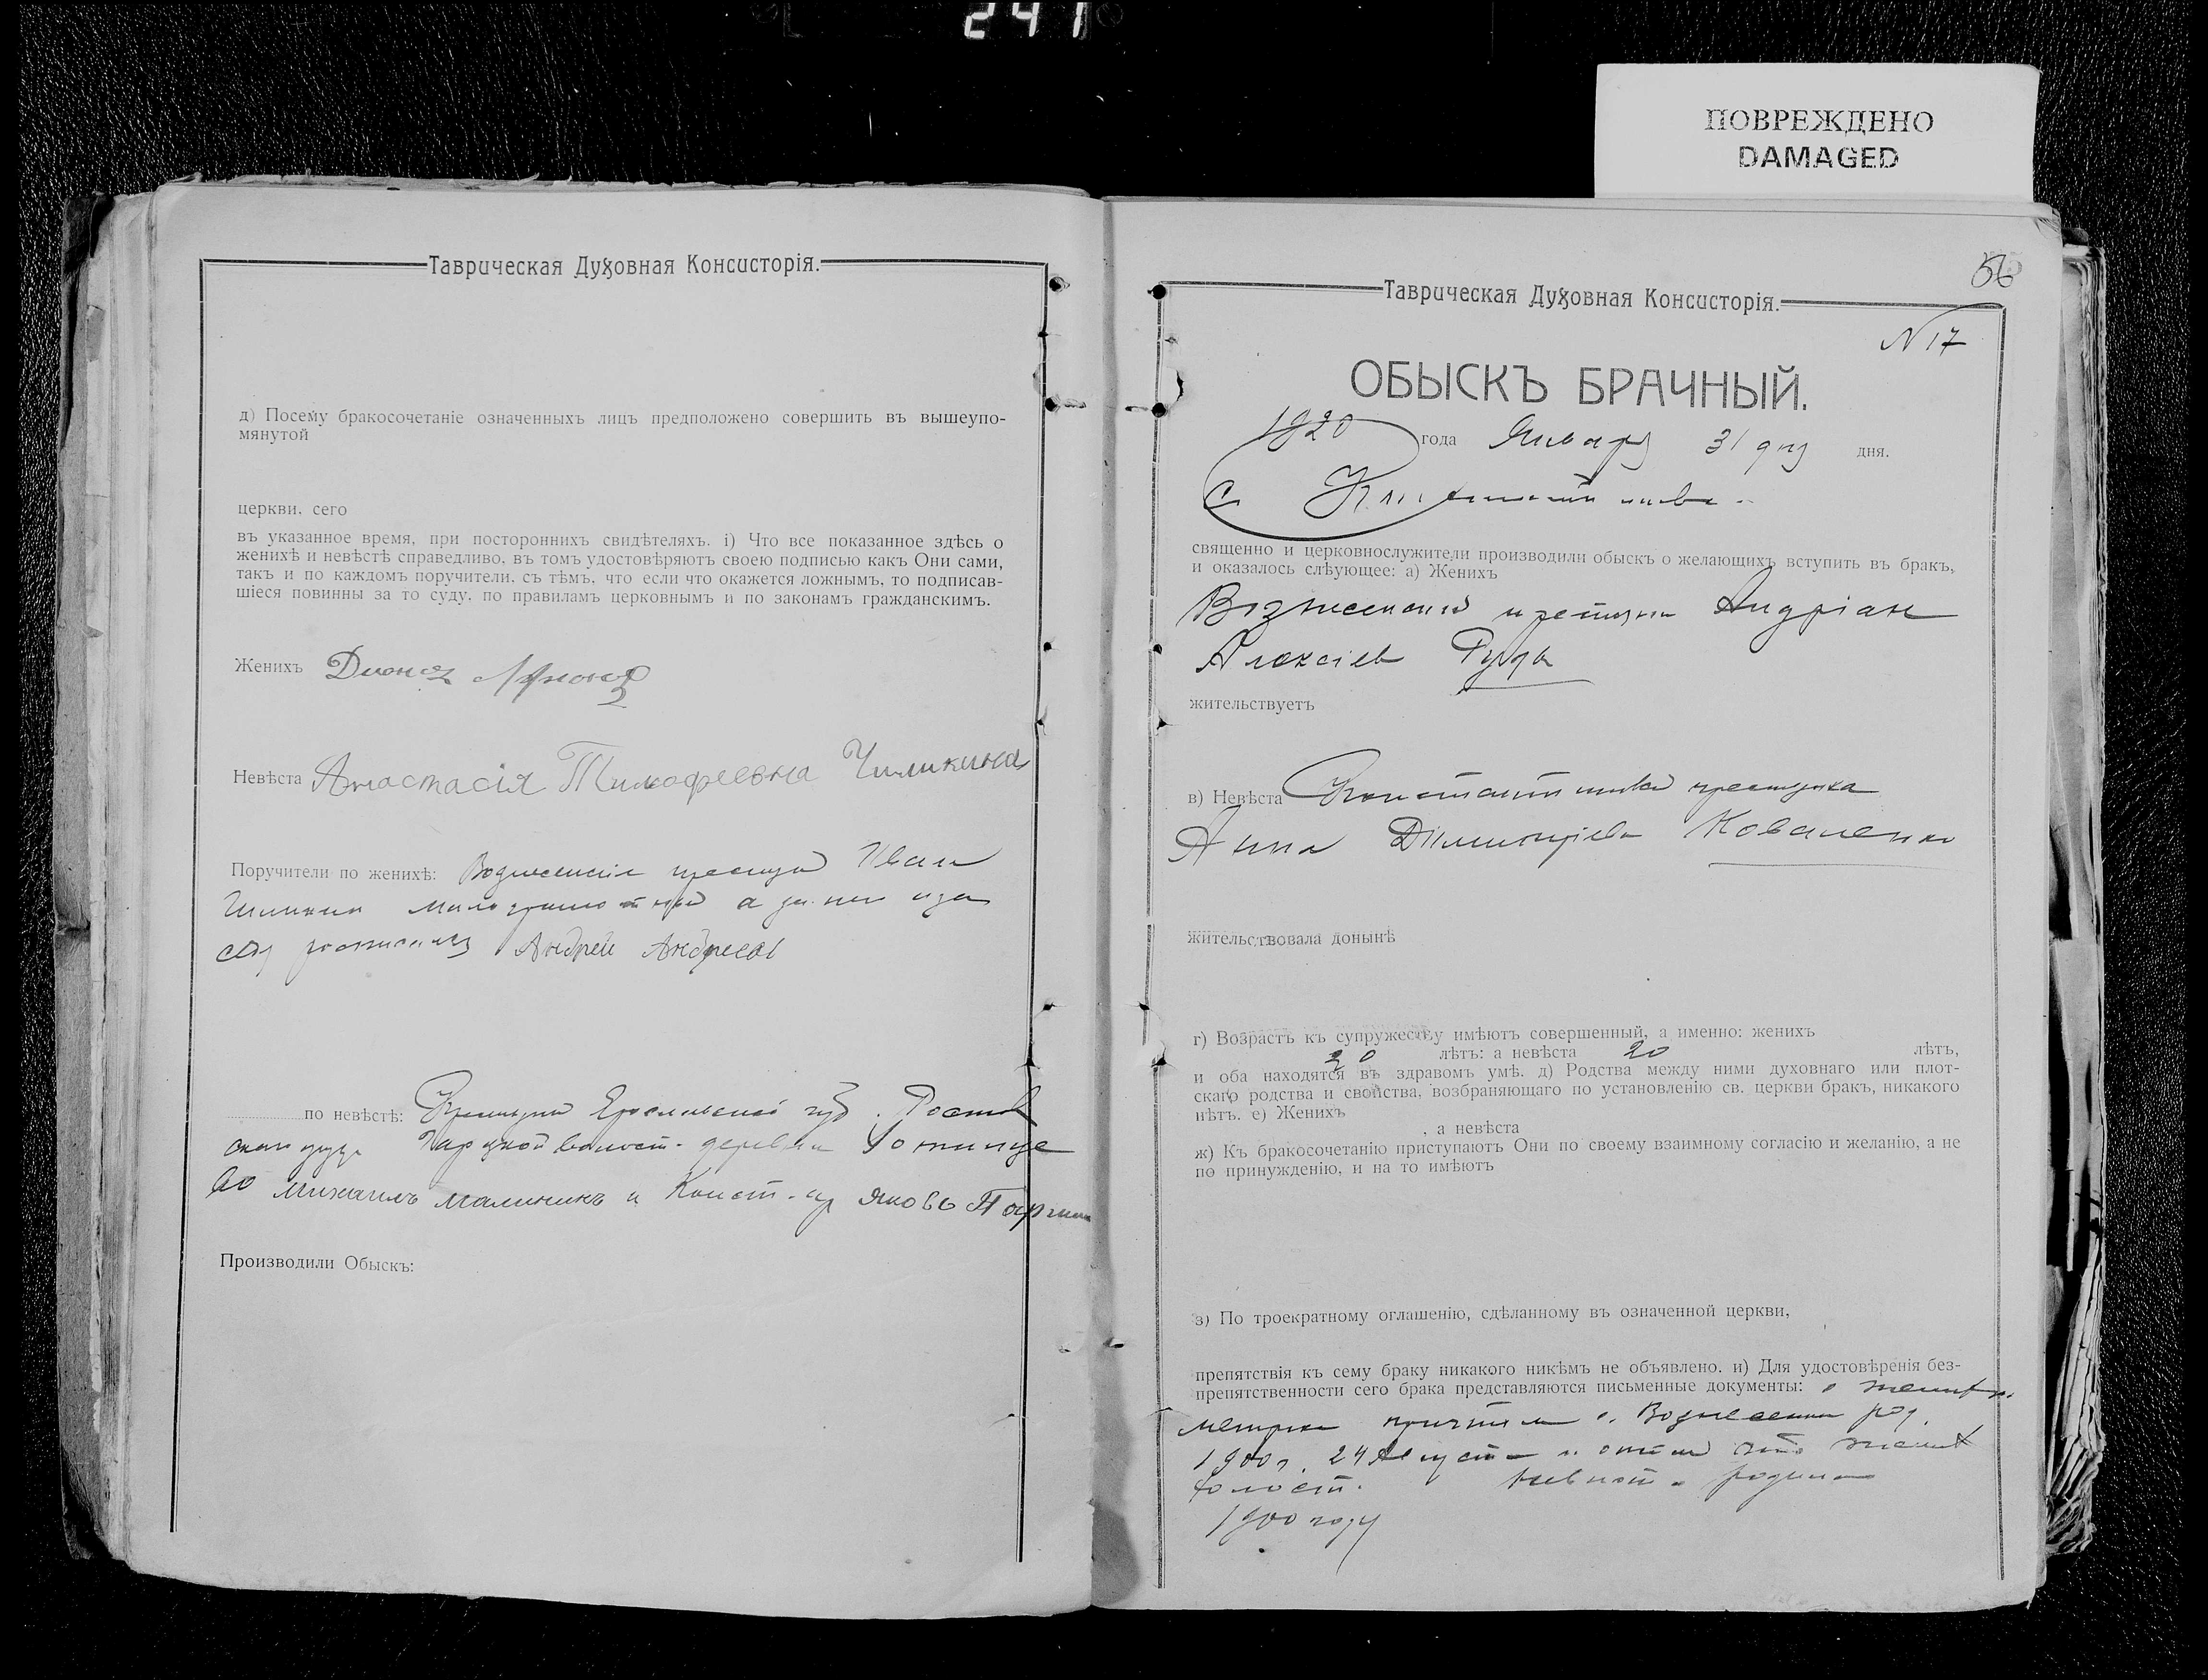 241
ПОВРЕЖДЕНО
DAMAGED
Таврическая Духовная Консисторія.
д) Посему бракосочетаніе означенныхъ лицъ предположено совершить въ вышеупо-
мянутой
церкви, сего
въ указанное время, при постороннихъ свидѣтеляхъ. і) Что все показанное здѣсь о
женихѣ и невѣстѣ справедливо, въ томъ удостовѣряютъ своею подписью какъ Они сами,
такъ и по каждомъ поручители, съ тѣмъ, что если что окажется ложнымъ, то подписав-
шіеся повинны за то суду, по правиламъ церковнымъ и по законамъ гражданскимъ.
Женихъ
Невѣста Анастасія Тимофеевна Чиликина
Поручители по женихѣ: Иван
Андрей Андреев
по невѣстѣ: губ. Ростов
волост. деревни
Михаилъ Малининъ и Конст. Яковъ
Производили Обыскъ:
56
Таврическая Духовная Консисторія.
N 17
ОБЫСКЪ БРАЧНЫЙ.
1920 года Января 31 дня дня.
с Константиновка
священно и церковнослужители производили обыскъ о желающихъ вступить въ бракъ,
и оказалось слѣующее: а) Женихъ
Андріан
Алексіев Рудь
жительствуетъ
в) Невѣста
Анна Коваленко
жительствовала донынѣ
г) Возрастъ къ супружеству имѣютъ совершенный, а именно: женихъ
20 лѣтъ: а невѣста 20 лѣтъ,
и оба находятся въ здравомъ умѣ. д) Родства между ними духовнаго или плот-
скаго родства и свойства, возбраняющаго по установленію св. церкви бракъ, никакого
нѣтъ. е) Женихъ
, а невѣста
ж) Къ бракосочетанію приступаютъ Они по своему взаимному согласію и желанію, а не
по принужденію, и на то имѣютъ
з) По троекратному оглашенію, сдѣланному въ означенной церкви,
препятствія къ сему браку никакого никѣмъ не объявлено. и) Для удостовѣренія без-
препятственности сего брака представляются письменные документы: о
с. Вознесенки род.
1900 г. 24 Августа
холост. невеста родилась
1900 году